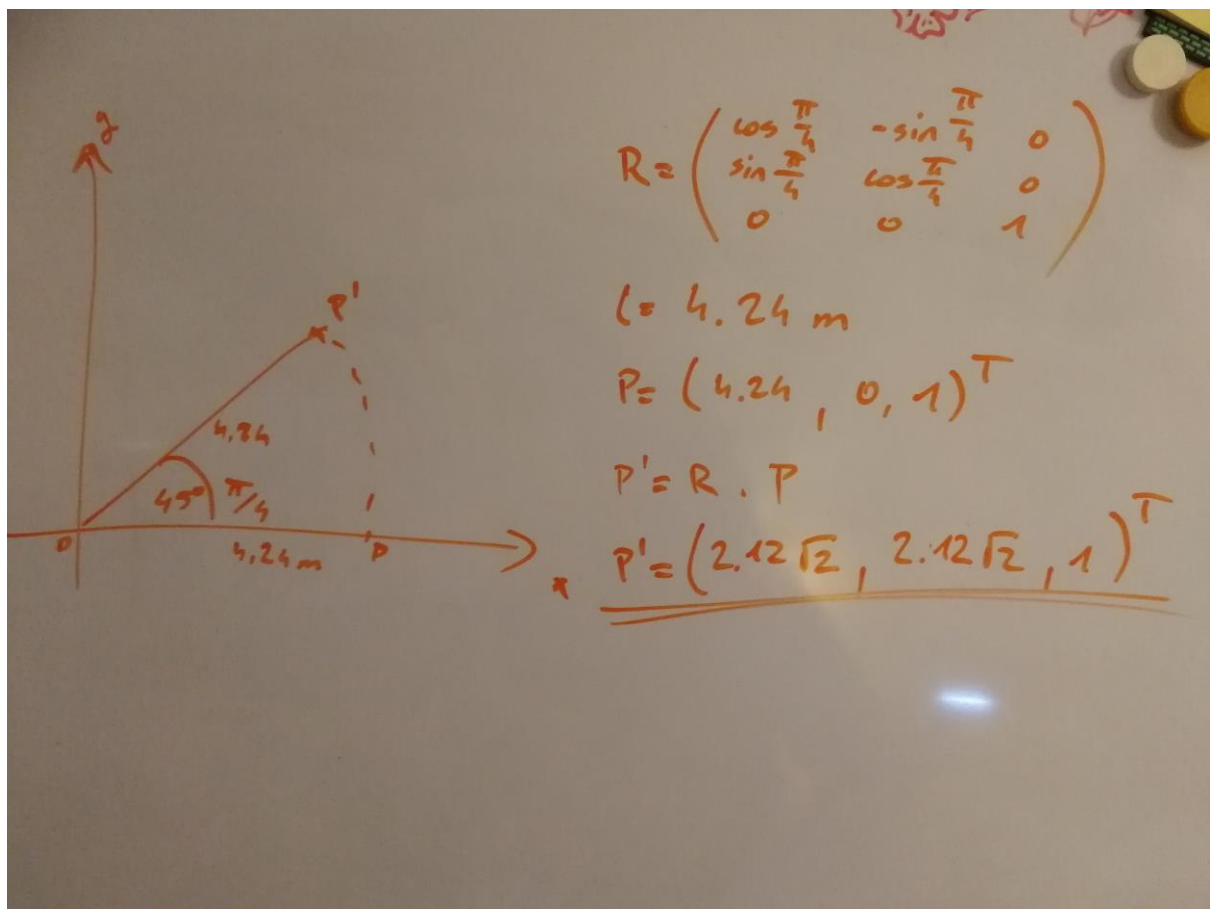 y
P'
4.24
45° π/4
0
4.24m
P
x
R = ( cos π/4 -sin π/4 0
sin π/4 cos π/4 0
0 0 1 )
l = 4.24 m
P = (4.24, 0, 1)^T
P' = R . P
P' = (2.12√2, 2.12√2, 1)^T